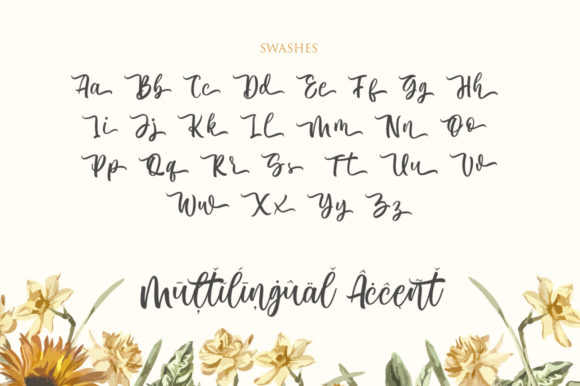 SWASHES
Aa Bb Cc Dd Ee Ff Gg Hh
Ii Jj Kk Ll Mm Nn Oo
Pp Qq Rr Ss Tt Uu Vv
Ww Xx Yy Zz
Mūļťiĺīņġûäľ Âċčęñť